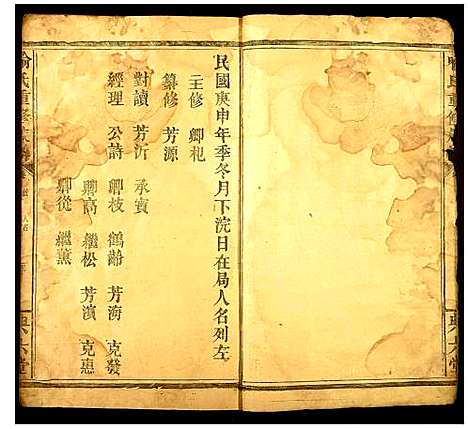 民國庚申年季冬月下浣日在局人名列左
主修 卿杞
纂修 芳源
對讀 芳沂 承寳
經理 公詩 卿枝 鶴齡 芳海 克發
卿高 繼松 芳濱 克惠
卿從 繼薰
喻氏重修族譜
典六堂